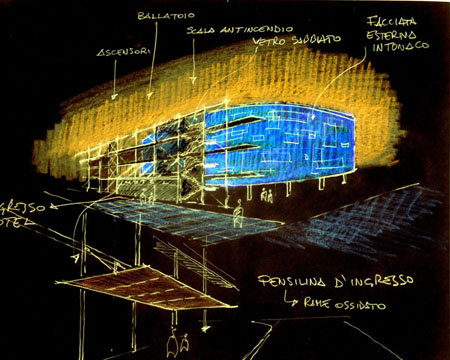 BALLATOIO
ASCENSORI
SCALA ANTINCENDIO
VETRO SABBIATO
FACCIATA
ESTERNA
INTONACO
GRESSO
OTEL
PENSILINA D'INGRESSO
RAME OSSIDATO